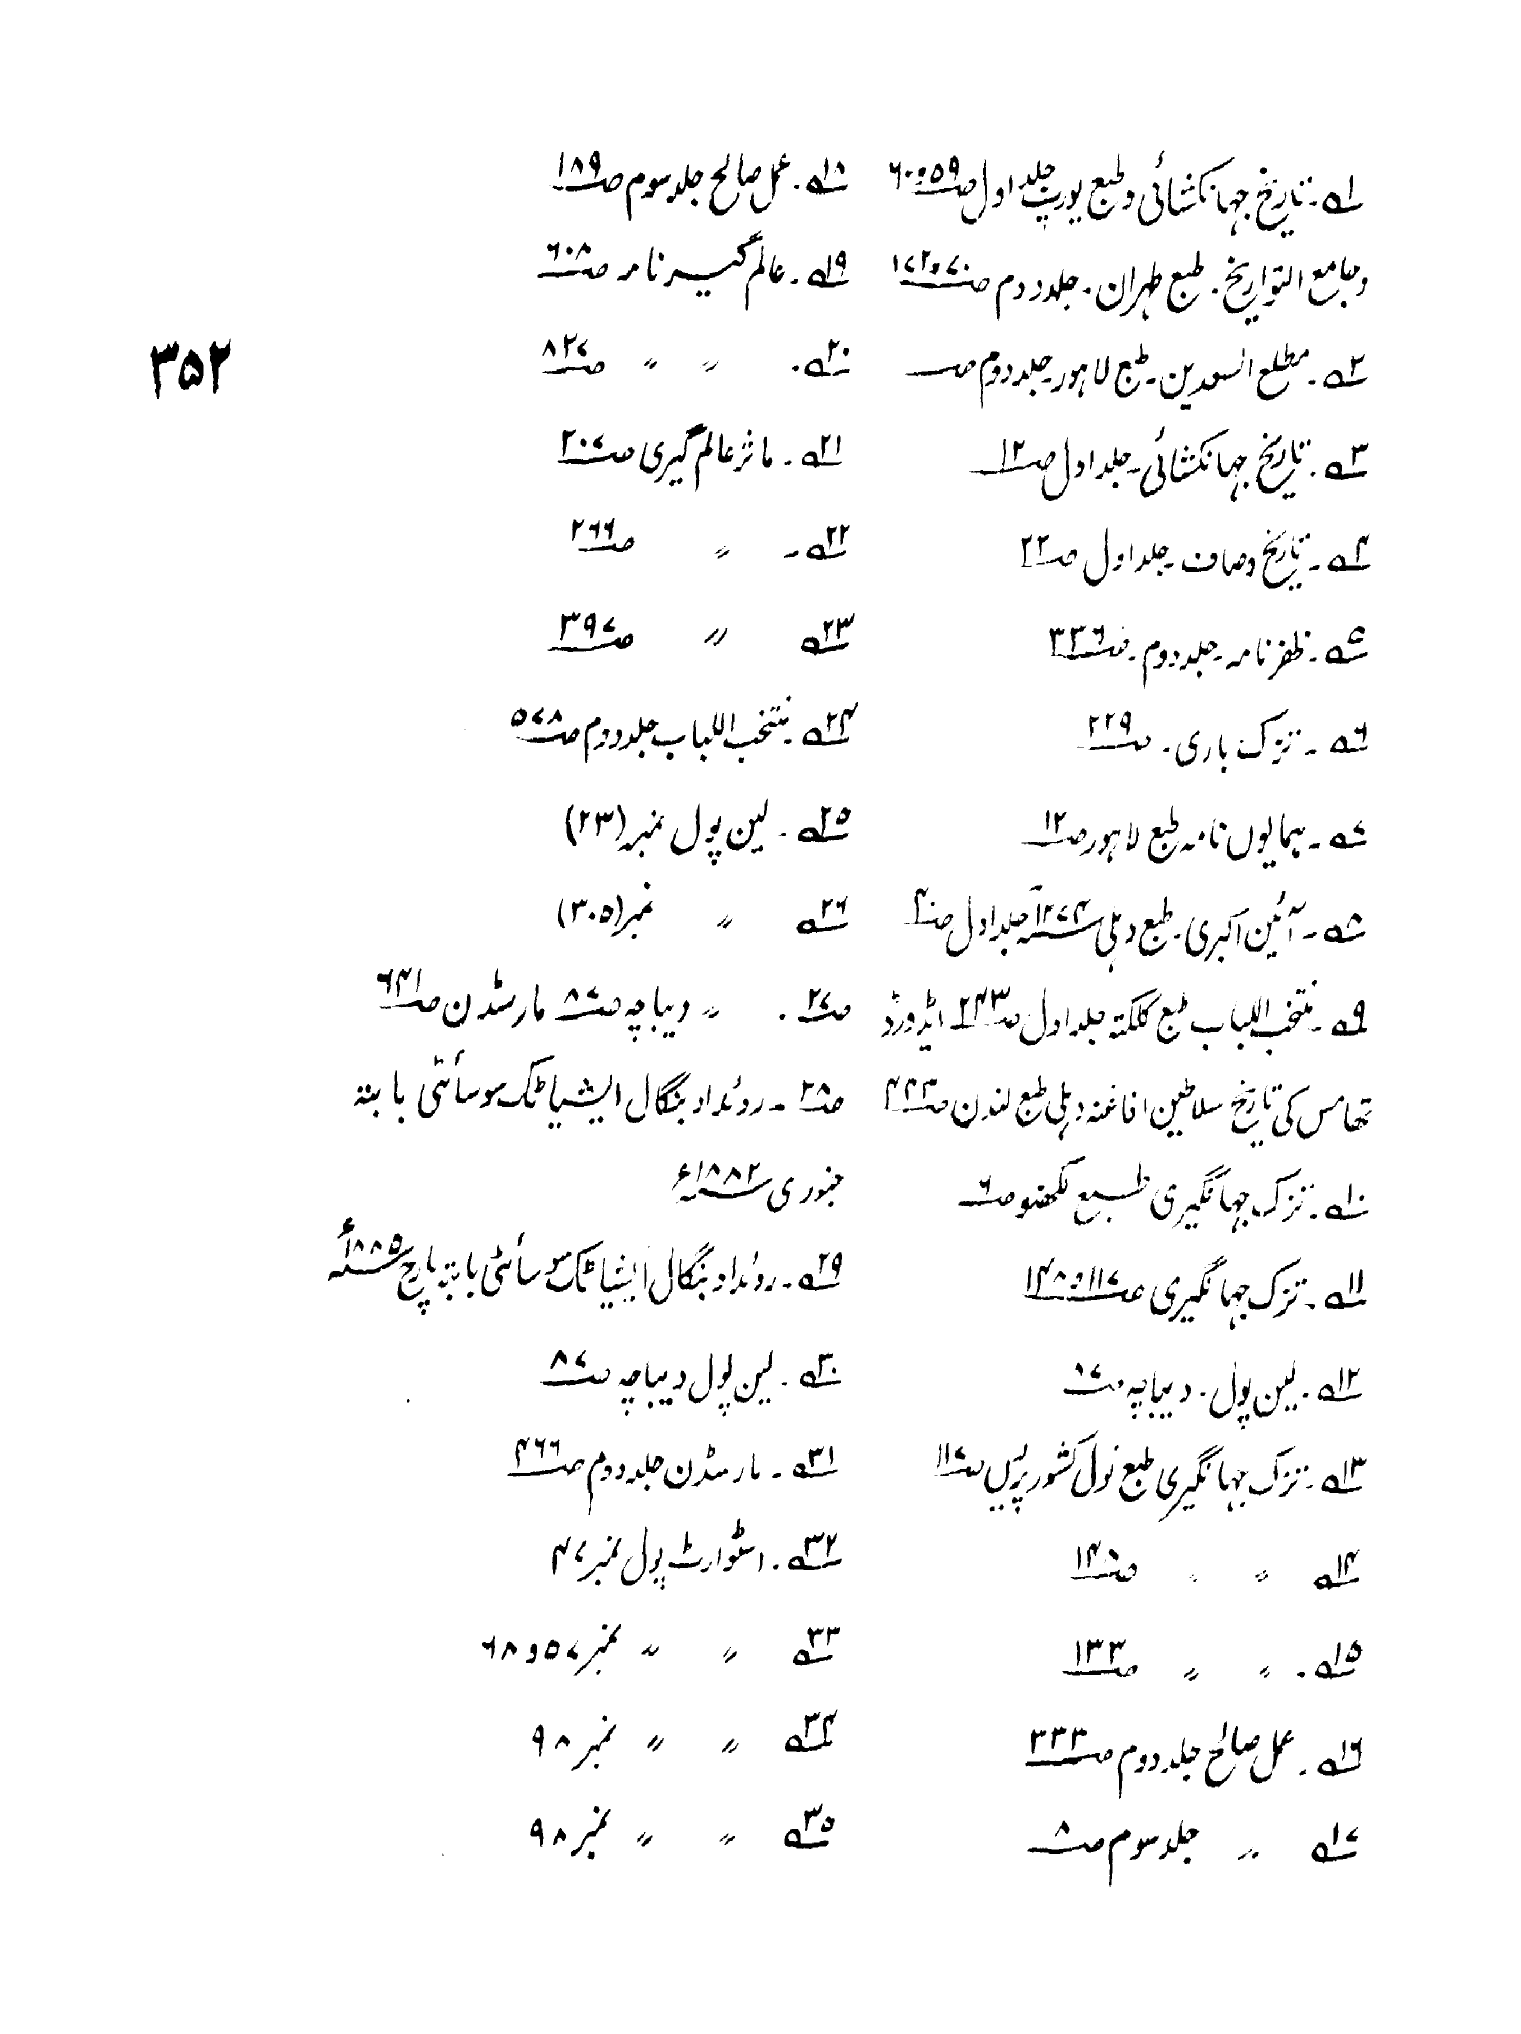 ۱؎۔ تاریخ جہانکشائی و طبع یورپ جلد اول ص۵۹و۶۰
وجامع التواریخ۔ طبع طہران۔ جلد دوم ص۷۰و۱۷۲
۲؎۔ مطلع السعدین۔ طبع لاہور۔ جلد دوم ص
۳؎۔ تاریخ جہانکشائی۔ جلد اول ص۱۲
۴؎۔ تاریخ وصاف۔ جلد اول ص۲۲
۵؎۔ ظفر نامہ۔ جلد دوم۔ ص۳۳۶
۶؎۔ تزک باری۔ ص۲۲۹
۷؎۔ ہمایوں نامہ طبع لاہور ص۱۲
۸؎۔ آئین اکبری۔ طبع دہلی ۱۲۷۴ جلد اول ص۴
۹؎۔ منتخب اللباب طبع کلکتہ جلد اول ص۲۴۳ ایڈورڈ
تھامس کی تاریخ سلاطین افاغنہ دہلی طبع لندن ص۴۴۳
۱۰؎۔ تزک جہانگیری طبع لکھنو ص۶
۱۱؎۔ تزک جہانگیری ص۱۱۷و۱۴۸
۱۲؎۔ لین پول۔ دیباچہ ص۸۷
۱۳؎۔ تزک جہانگیری طبع نول کشور پریس ص۱۱۷
۱۴؎ 〃 〃 ص۱۴۸
۱۵؎۔ 〃 〃 ص۱۳۳
۱۶؎۔ عمل صالح جلد دوم ص۳۳۳
۱۷؎ 〃 جلد سوم ص۸
۱۸؎۔ عمل صالح جلد سوم ص۱۸۹
۱۹؎۔ عالم گیر نامہ ص۶۰۸
۲۰؎۔ 〃 〃 ص۸۲۷
۲۱؎۔ ماثر عالم گیری ص۲۰۷
۲۲؎۔ 〃 ص۲۶۶
۲۳؎ 〃 ص۳۹۷
۲۴؎۔ منتخب اللباب جلد دوم ص۵۷۸
۲۵؎۔ لین پول نمبر (۲۳)
۲۶؎ 〃 نمبر (۳۰۵)
ص۲۷۔ 〃 دیباچہ ص۸۷ مارسڈن ص۶۴۱
ص۲۸۔ روئداد بنگال ایشیاٹک سوسائٹی بابتہ
جنوری ۱۸۸۲ء
۲۹؎۔ روئداد بنگال ایشیاٹک سوسائٹی بابتہ مارچ ۱۸۸۵ء
۳۰؎۔ لین پول دیباچہ ص۸۷
۳۱؎۔ مارسڈن جلد دوم ص۴۶۶
۳۲؎۔ اسٹوارٹ پول نمبر ۴۷
۳۳؎ 〃 〃 نمبر ۵۷و۶۸
۳۴؎ 〃 〃 نمبر ۹۸
۳۵؎ 〃 〃 نمبر ۹۸
۳۵۲